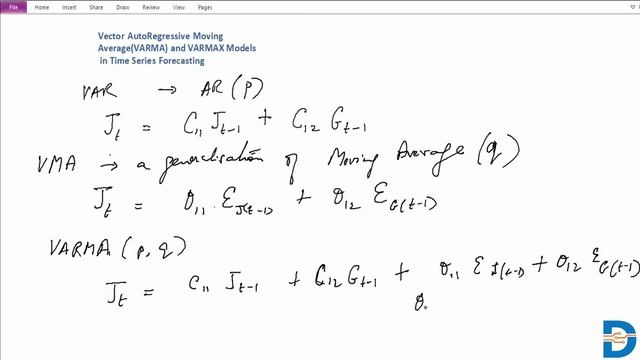 File Home Insert Draw History Review View
Vector AutoRegressive Moving
Average(VARMA) and VARMAX Models
in Time Series Forecasting
VAR → AR(P)
J_t = C_11 J_t-1 + C_12 G_t-1
VMA → a generalisation of Moving Average (q)
J_t = θ_11 . Ɛ_J(t-1) + θ_12 Ɛ_G(t-1)
VARMA (p, q)
J_t = C_11 J_t-1 + C_12 G_t-1 + θ_11 Ɛ_J(t-1) + θ_12 Ɛ_G(t-1)
θ.